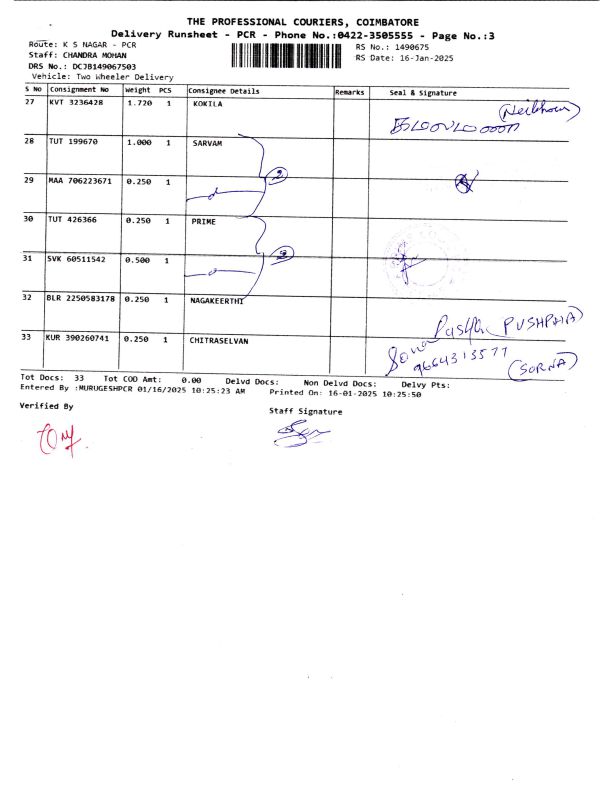 THE PROFESSIONAL COURIERS, COIMBATORE
Delivery Runsheet - PCR - Phone No.:0422-3505555 - Page No.:3
Route: K S NAGAR - PCR RS No.: 1490675
Staff: CHANDRA MOHAN RS Date: 16-Jan-2025
DRS No.: DCJB149067503
Vehicle: Two Wheeler Delivery
S No Consignment No Weight PCS Consignee Details Remarks Seal & Signature
27 KVT 3236428 1.720 1 KOKILA
28 TUT 199670 1.000 1 SARVAM
29 MAA 706223671 0.250 1 2
30 TUT 426366 0.250 1 PRIME
31 SVK 60511542 0.500 1
32 BLR 2250583178 0.250 1 NAGAKEERTHI
33 KUR 390260741 0.250 1 CHITRASELVAN
9664313577
(SORNA)
Tot Docs: 33 Tot COD Amt: 0.00 Delvd Docs: Non Delvd Docs: Delvy Pts:
Entered By :MURUGESHPCR 01/16/2025 10:25:23 AM Printed On: 16-01-2025 10:25:50
Verified By Staff Signature